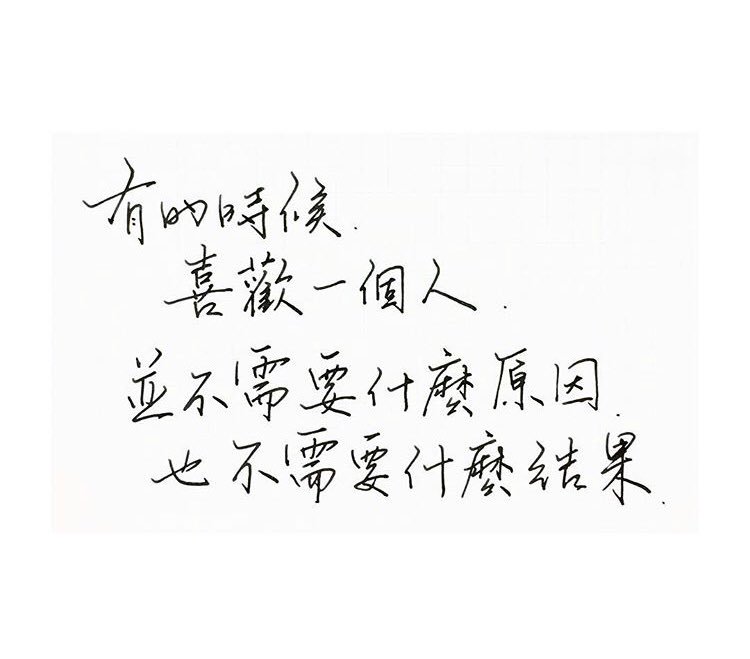 有的時候.
喜歡一個人.
並不需要什麼原因.
也不需要什麼結果.